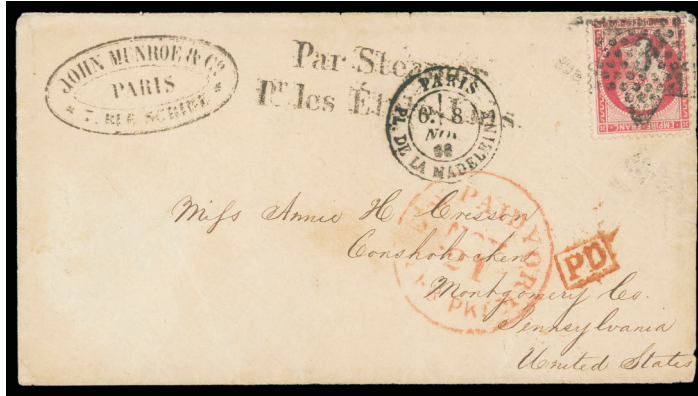 JOHN MUNROE & Co.
PARIS
7. RUE SCRIBE
Par Steamer
Pr. les
PARIS
8
NOV.
68
PL. DE LA MADELEINE
EMPIRE FRANC
PAID
NOV
21
PD
Miss Annie H Cresson
Conshohocken
Montgomery Co.
Pennsylvania
United States